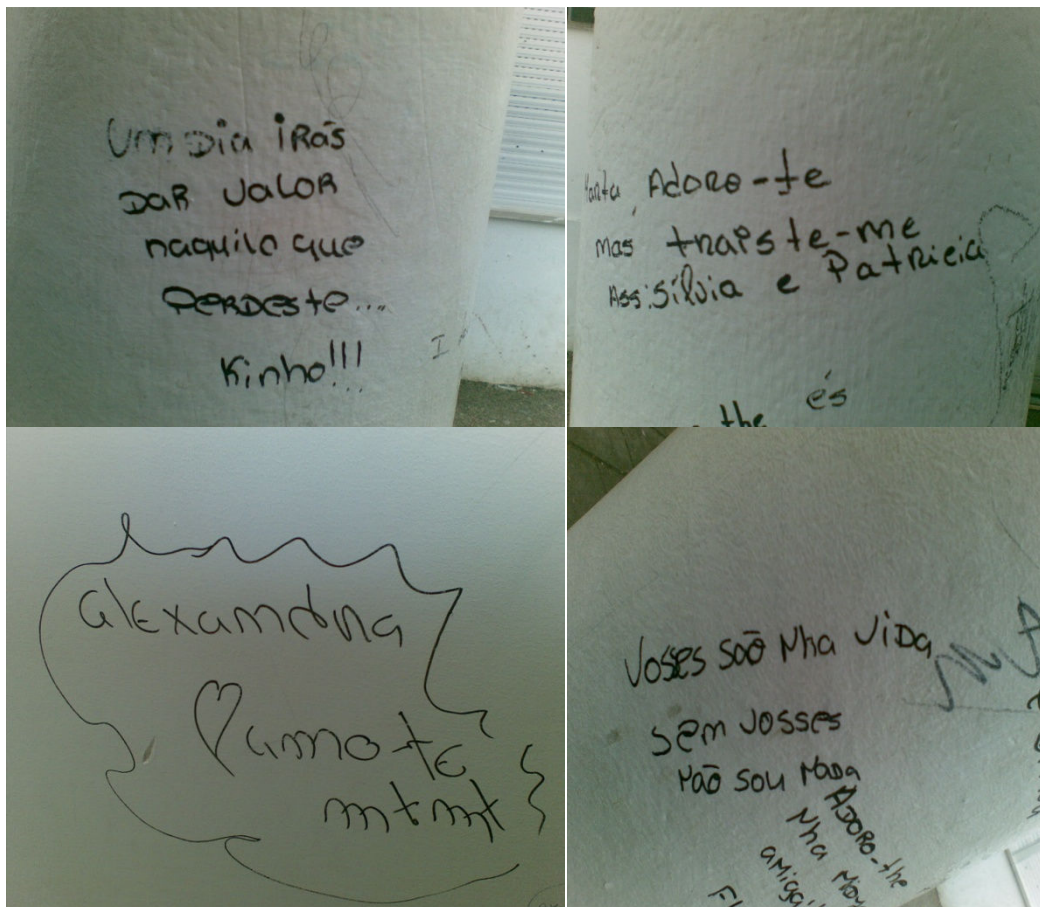 Um Dia iRás
DaR ValoR
naquilo que
PeRDeste...
Kinho!!!
I
Adoro-te
mas traiste-me
Ass:Sílvia e Patricia
the és
alexandra
amo-te
mtmt
Vosses são Nha Vida
sem vosses
Não sou Nada
ADORO-the
Nha